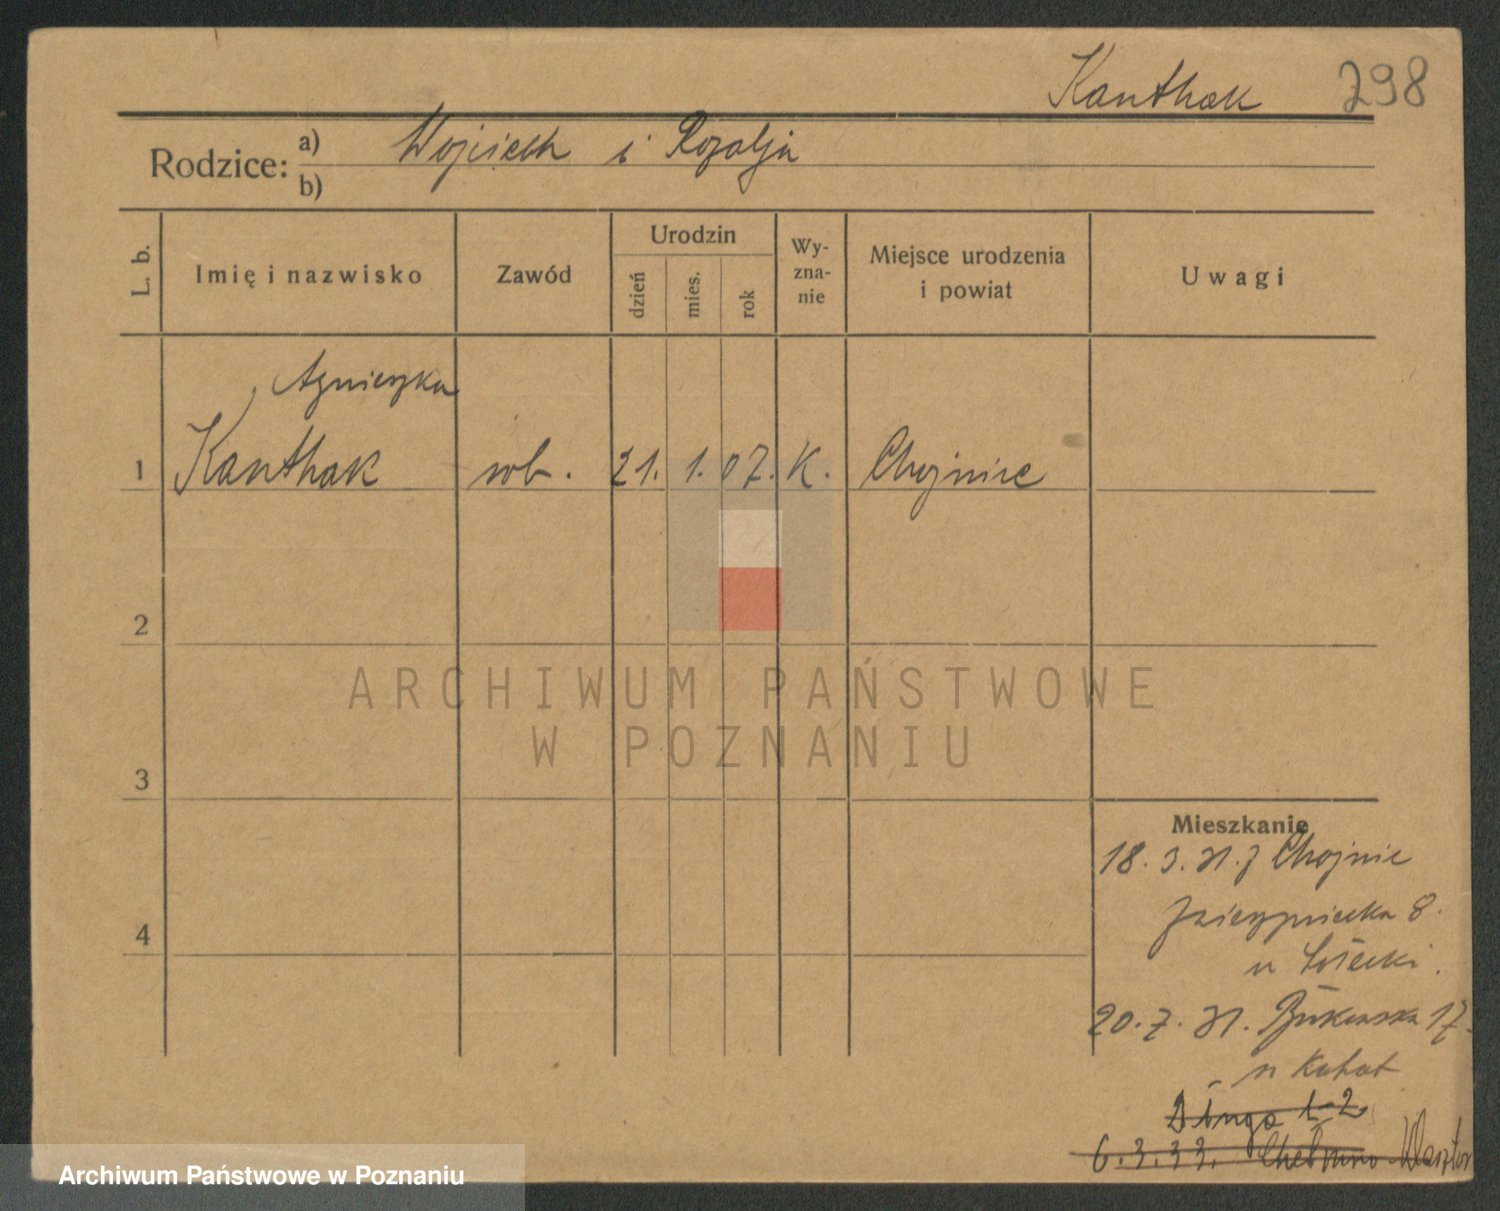 Kanthak 298
Rodzice: a) Wojciech i Rozalja
b)
L. b. Imię i nazwisko Zawód Urodzin dzień mies. rok Wy-zna-nie Miejsce urodzenia i powiat Uwagi
Agnieszka
1 Kanthak rob. 21. 1. 07. K. Chojnice
2
3
4
Mieszkanie
18. 3. 31. z Chojnic
8.
u
20. 7. 31. Bukowska 17.
u Kabat
Długa 1-2
6. 3. 33. Chełmno Klasztor
ARCHIWUM PAŃSTWOWE
W POZNANIU
Archiwum Państwowe w Poznaniu